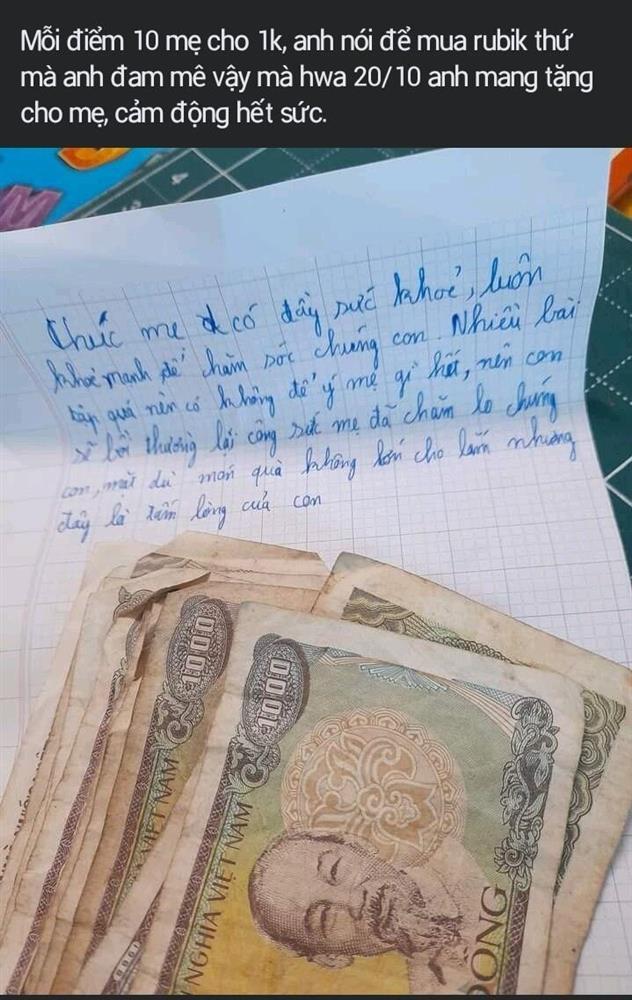 Mỗi điểm 10 mẹ cho 1k, anh nói để mua rubik thứ
mà anh đam mê vậy mà hwa 20/10 anh mang tặng
cho mẹ, cảm động hết sức.
Chúc mẹ có đầy sức khoẻ, luôn
khoẻ mạnh để chăm sóc chúng con. Nhiều bài
tập quá nên có không để ý mẹ gì hết, nên con
sẽ bồi thường lại công sức mẹ đã chăm lo chúng
con, mặt dù món quà không lớn cho lắm nhưng
đây là tấm lòng của con
1000
1000
VIỆT NAM
NGHĨA VIỆT NAM
ĐỒNG